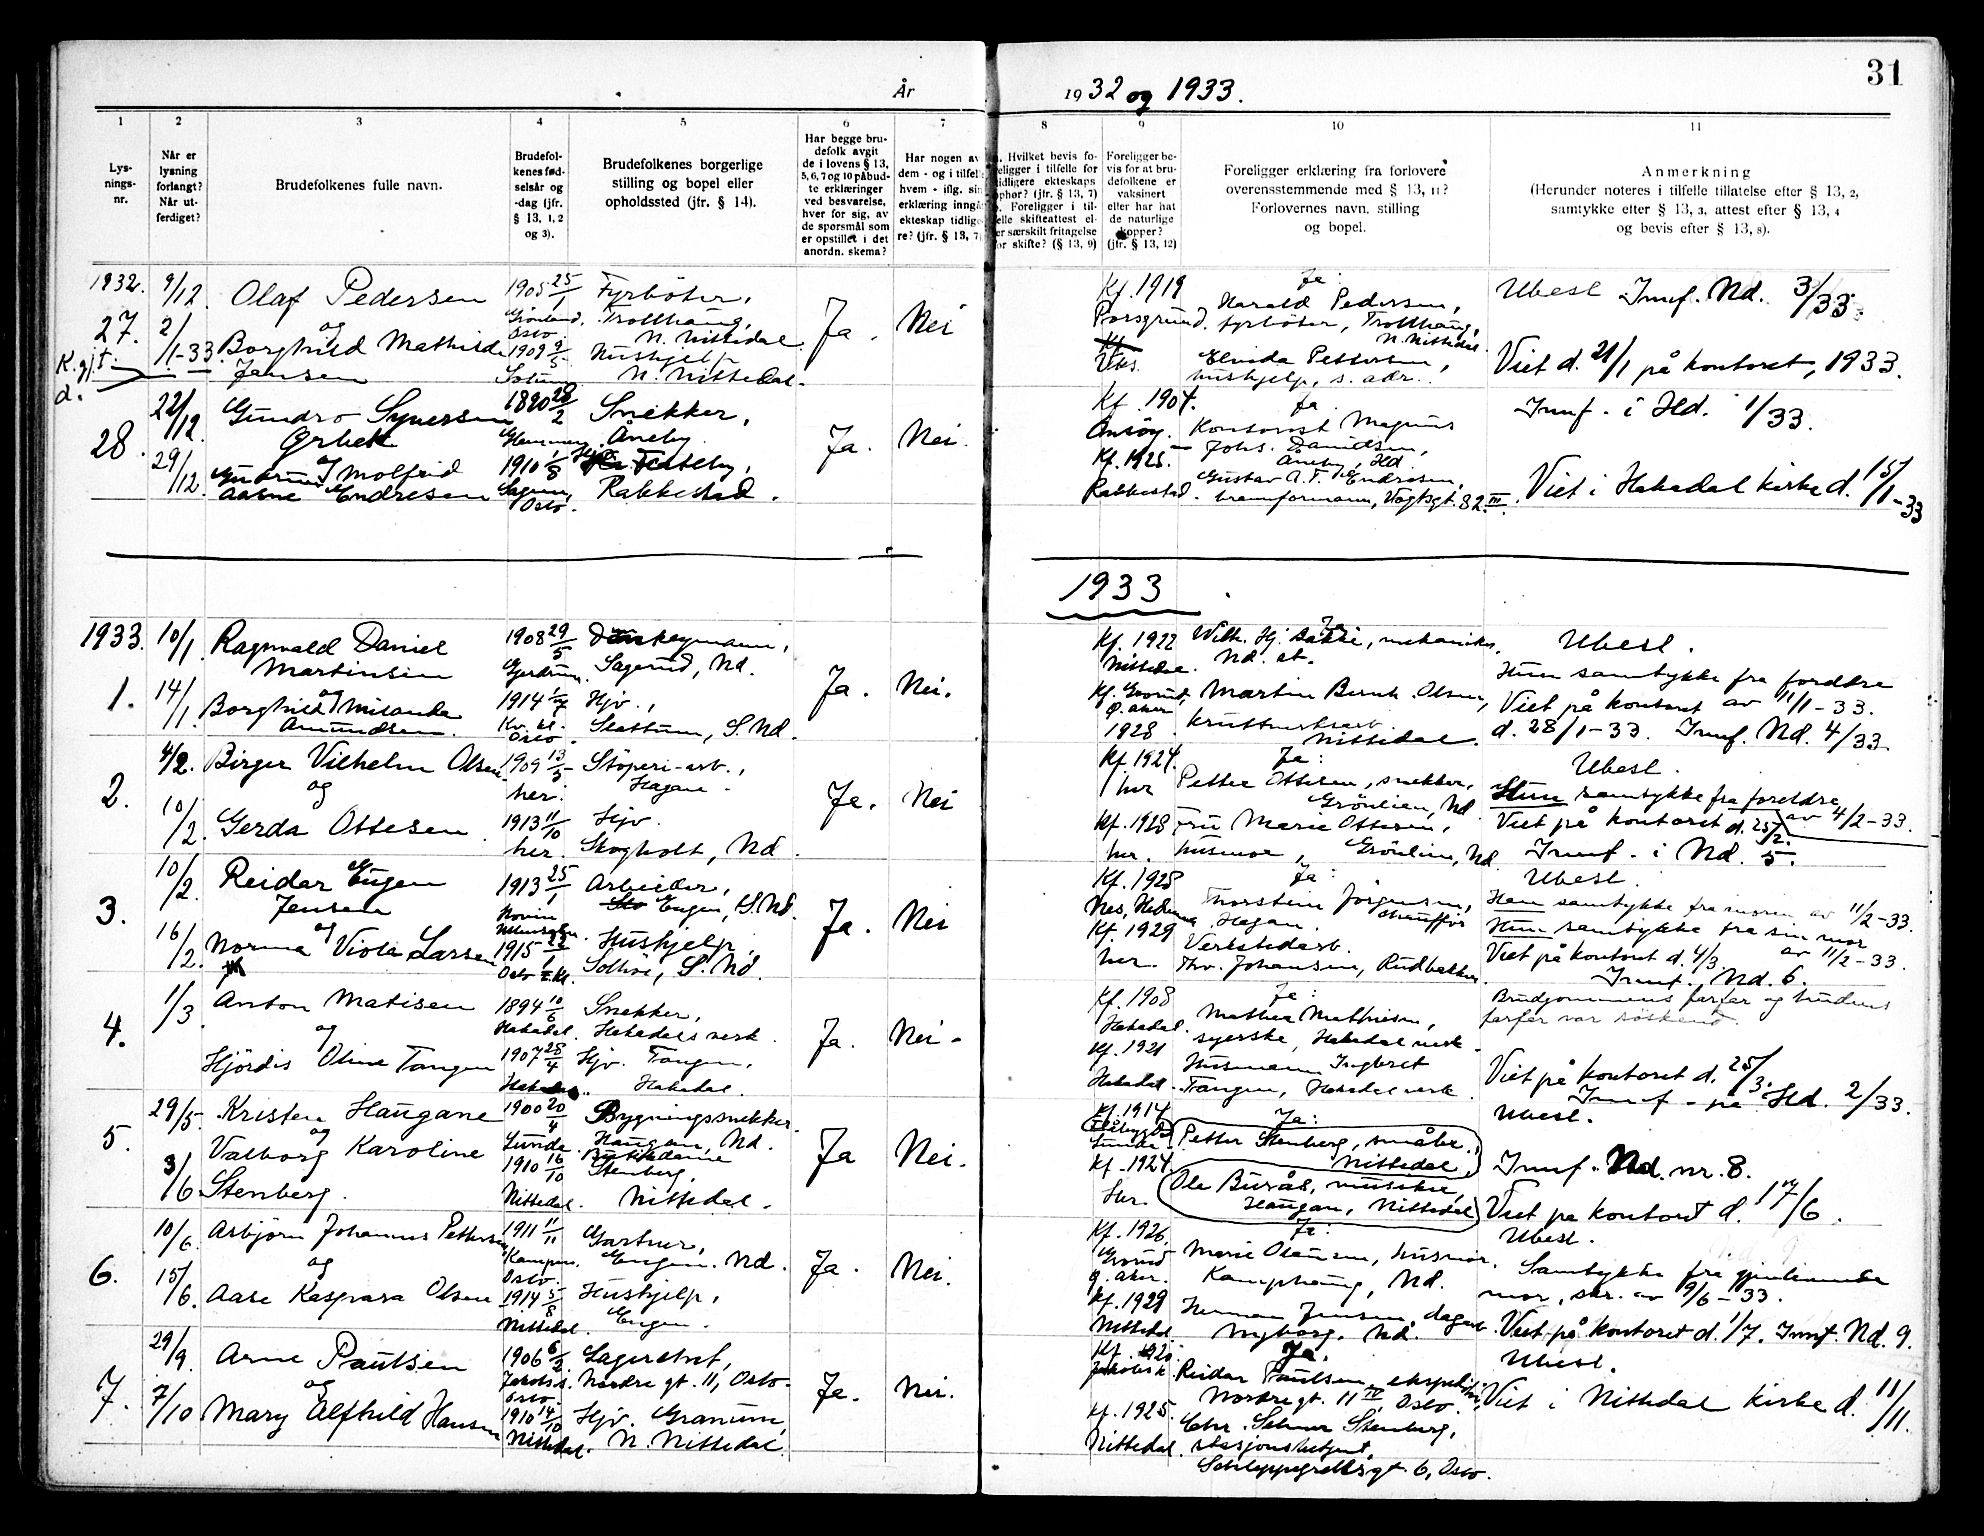 31
År 1932 og 1933.
1 2 3 4 5 6 7 8 9 10 11
Lys-
nings-
nr.
Når er
lysning
forlangt?
Når ut-
ferdiget?
Brudefolkenes fulle navn.
Brudefol-
kenes fød-
selsår og
-dag (jfr.
§ 13, 1, 2
og 3).
Brudefolkenes borgerlige
stilling og bopel eller
opholdssted (jfr. § 14).
Har begge bru-
defolk avgit
de i lovens § 13,
5, 6, 7 og 10 påbud-
te erklæringer
ved besvarelse,
hver for sig, av
de spørsmål som
er opstillet i det
anordn. skema?
Har nogen av
dem - og i tilfel
hvem - iflg. sin
erklæring inngå
ekteskap tidlige
re? (jfr. § 13, 7
Hvilket bevis fo-
religger i tilfelle for
tidligere ekteskaps
ophør? (jfr. § 13, 7)
Foreligger i til-
felle skifteattest el-
er særskilt fritagelse
for skifte? (§ 13, 9)
Foreligger be-
vis for at bru-
defolkene er
vaksinert
eller har hat
de naturlige
kopper?
(jfr. § 13, 12)
Foreligger erklæring fra forlovere
overensstemmende med § 13, 11?
Forlovernes navn, stilling
og bopel.
Anmerkning
(Herunder noteres i tilfelle tillatelse efter § 13, 2,
samtykke efter § 13, 3, attest efter § 13, 4
og bevis efter § 13, 8).
1932. 27. K. gjt. d.
9/12. 2/1-33
Olaf Pedersen
og
Borghild Mathilde
Jensen
1905 25/1
Grønland, Oslo
1909 9/5
Fyrbøter,
Trollhaug,
N. Nittedal.
Hushjelp
N. Nittedal.
Ja. Nei
Kf. 1919
Porsgrund.
Vks.
Ja:
Harald Pedersen,
fyrbøter, Trollhaug,
N. Nittedal.
Elvida Pettersen,
hushjelp, s. adr.
Ubesl. Innf. Nd. 3/33.
Viet d. 21/1 på kontoret, 1933.
28.
22/12 29/12.
Gundro Syversen
Ørbek
og
Gudrun Molfrid
Aasne Endresen
1890 28/2
1910 1/8
Sagene,
Oslo.
Snekker,
Åneby.
Rakkestad.
Ja. Nei.
Kf. 1904.
Kf. 1925.
Rakkestad.
Ja.
Kontorist Magnus
Johs. Danielsen,
Åneby, Hd.
Gustav A. F. Endresen,
tramformann, Vogtsgt. 82 III.
Innf. i Hd. 1/33.
Viet i Hakadal kirke d. 15/1-33
1933
1933. 1.
10/1. 14/1.
Ragnvald Daniel
Martinsen
og
Borghild Milanda
Amundsen.
1908 29/5
Gjerdrum.
1914 1/7
Kv. kl. Oslo.
Donkeymann,
Sagerud, Nd.
Hjv.,
Slattum, S. Nd.
Ja. Nei.
Kf. 1922
Nittedal.
Kf. Grorud,
Ø. aker
1928
Ja:
Wilh. Hj. Bakke, mekaniker,
Nd. st.
Martin Bernh. Olsen,
krutturksarb.
Nittedal.
Ubesl.
Hun samtykke fra foreldre
Viet på kontoret av 11/1-33.
d. 28/1-33. Innf. Nd. 4/33.
2.
4/2. 10/2.
Birger Vilhelm Olsen
og
Gerda Ottesen
1909 13/5
her.
1913 11/10
her.
Støperi-arb.,
Hagan.
Hjv.
Skogholt, Nd.
Ja. Nei
Kf. 1924.
her
Kf. 1928
her.
Ja:
Petter Ottesen, snekker,
Grönlien, Nd.
Fru Marie Ottesen,
husmor, Grönlien, Nd
Ubesl.
Hun samtykke fra foreldre
av 4/2-33.
Viet på kontoret d. 25/2.
Innf. i Nd. 5.
3.
10/2 16/2.
Reidar Eugen
Jensen
og
Norma Viola Larsen
1913 25/1
1915 22/1
Oslo
Arbeider,
Engen, S. Nd.
Hushjelp,
Solhøi, S. Nd.
Ja. Nei
Kf. 1928
Nes, Hedmark
Kf. 1929
her.
Ja:
Thorstein Jörgensen,
Hagan. chauffør
Verkstedarb.
Thv. Johansen, Rudbakken
Ubesl.
Han samtykke fra moren av 11/2-33.
Hun samtykke fra sin mor
av 11/2-33.
Viet på kontoret d. 4/3.
Innf. Nd. 6.
4.
1/3
Anton Matisen
og
Hjördis Oline Tangen
1894 10/6
Hakadal.
1907 28/4
Hakadal.
Snekker,
Hakadals verk.
Hjv. Tangen,
Hakadal.
Ja. Nei.
Kf. 1908
Hakadal.
Kf. 1921
Hakadal.
Ja:
Mathea Mathisen,
syerske, Hakadal verk.
Husmann Ingbret
Tangen, Hakadal verk.
Brudgommens farfar og brudens
farfar var söskend.
Viet på kontoret d. 25/3.
Innf - på Hd. 2/33.
5.
29/5. 3/6
Kristen Haugane
og
Valborg Karoline
Stenberg.
1900 20/4
Lunde.
1910 16/10
Nittedal.
Bygningssnekker.
Haugan, Nd.
Butikkdame
Stenberg,
Nittedal.
Ja Nei.
Kf. 1914
Lunde.
Kf. 1924.
Her.
Ja:
Petter Stenberg, småbr.
Nittedal.
Ole Burås,
Haugan, Nittedal
Ubesl.
Innf. Nd. nr. 8.
Viet på kontoret d. 17/6.
6.
10/6. 15/6.
Asbjørn Johannes Pettersen
og
Aase Kaspara Olsen
1911 11/11
Kampen, Oslo.
1914 5/8
Nittedal.
Gartner,
Engen. Nd.
Hushjelp,
Engen.
Ja. Nei.
Kf. 1926,
Grorud
Ø. aker.
Kf. 1929
Nittedal.
Ja:
Marie Olausen, husmor.
Kamphaug, Nd.
Herman Jensen, dagarb.
Nyborg, Nd.
Ubesl.
Samtykke fra gjenlevende
mor, skr. av 9/6-33.
Viet på kontoret d. 1/7. Innf. Nd. 9.
7.
29/9. 7/10
Arne Paulsen
og
Mary Alfhild Hansen
1906 6/2
Jakobs k. Oslo
1910 14/10
Nittedal.
Lagerchef,
Nordre gt. 11, Oslo.
Hjv. Granum,
N. Nittedal.
Ja. Nei.
Kf. 1920
Jakobs k
Kf. 1925.
Nittedal.
Ja.
Reidar Paulsen, ekspeditør,
Nordregt. 11 IV, Oslo.
Chr. Selmer Stenberg,
stasjonsbetjent,
Schleppegrellsgt. 6, Oslo.
Ubesl.
Viet i Nittedal kirke d. 11/11.